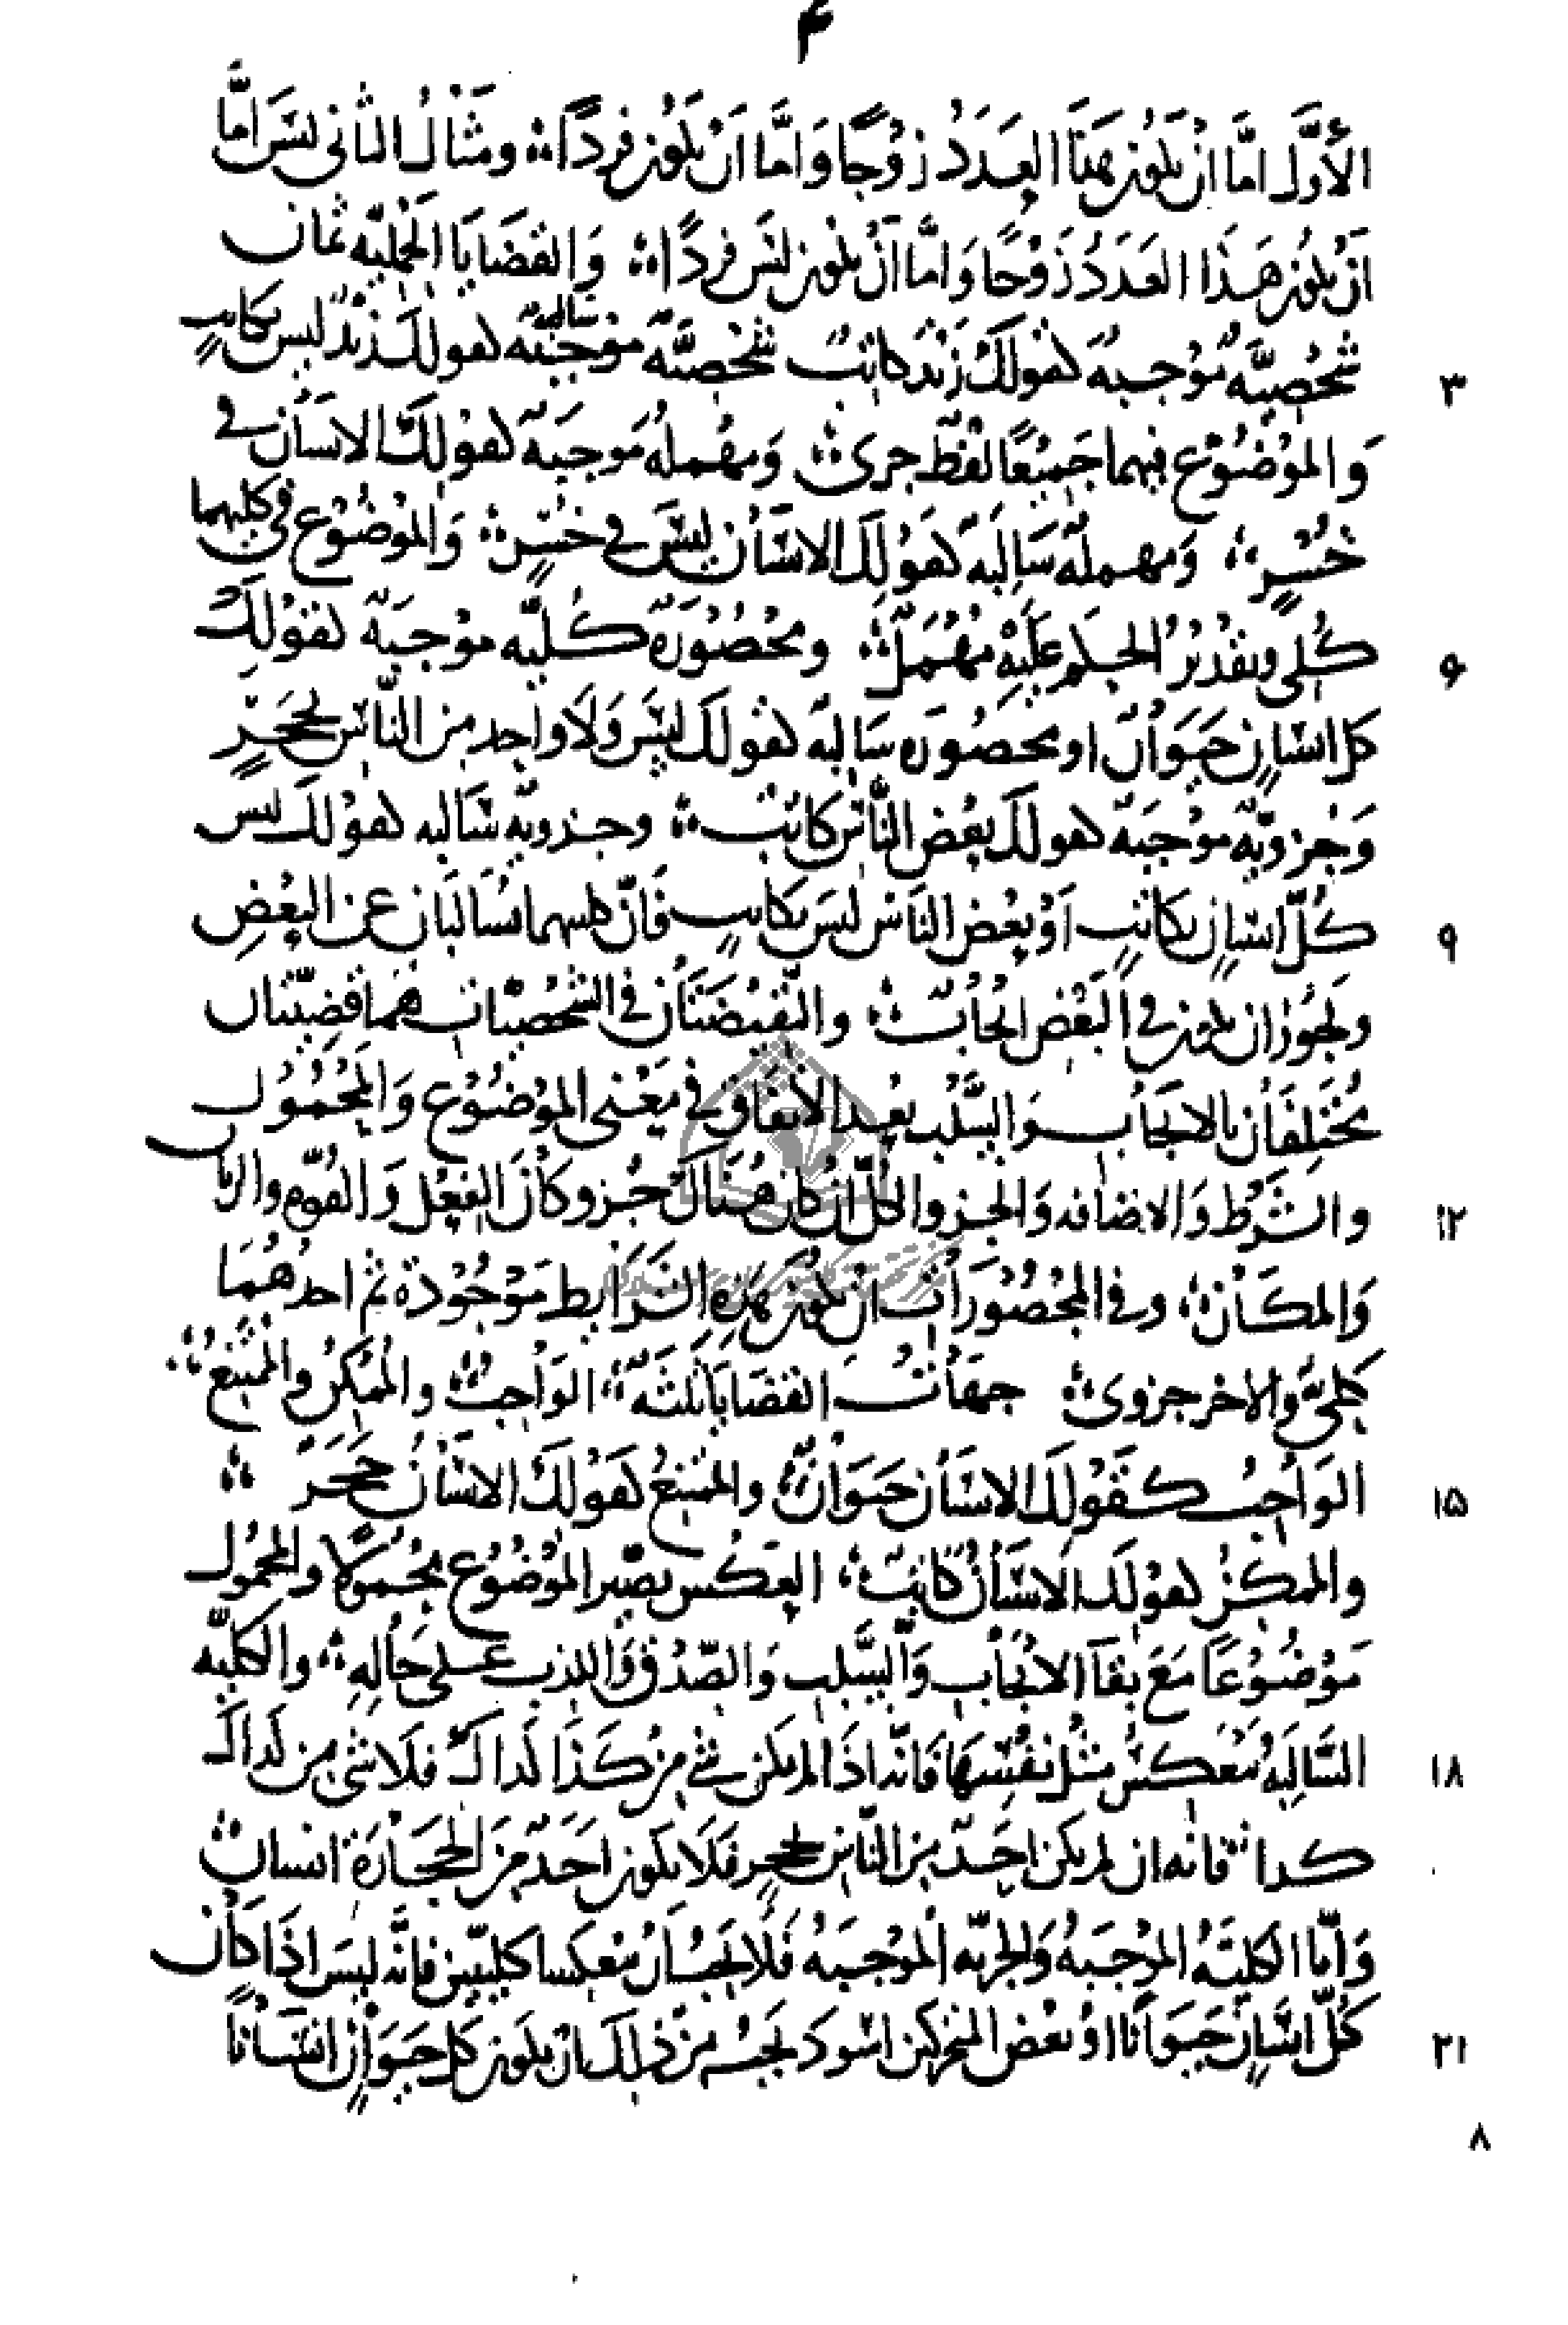 ۴
الأوّل امّا ان يكون هذا العَدَدُ زوْجًا وَامّا اَنْ يكون فردًا ؞ ومثالُ الثانى ليسَ امّا
اَنْ يكون هَذا العَدَدُ زَوْجًا وَامَّا اَنْ يكون ليسَ فردًا ؞ وَالقضَايَا الحمليّه ثمان
شخصيَّه مُوْجبه كقولكَ زَيْد كاتب شخصيَّه موجَبَه سالبه كقولك زيدٌ ليس بكاتبٍ
۳
وَالموْضُوْع فيهما جَميْعًا لفظ جزى ؞ وَمهمله مَوجبَه كقولكَ الانسَان فى
خُسْرٍ ؞ وَمهمله سَالِبَه كقوْلِكَ الانسَان ليسَ فى خُسْرٍ ؞ وَالموْضُوْع فى كليهما
كُلى وتقديْرُ الحكم عَلَيْهِ مُهْمَل ؞ ومحْصُوْرَه كُليّه موْجَبَه كقوْلِكَ
۶
كل انسَانٍ حَيَوَانٌ او محصُورَه سَالِبَه كقولكَ ليسَ وَلَا واحد من النَّاس بحَجَرٍ
وَجُزويّه موْجَبَه كقولك بعْض النَّاس كَاتب ؞ وجزويه سَالبه كقوْلكَ ليس
كُلّ انسَانٍ بكاتبٍ اَوْ بعْض النَّاس ليسَ بكاتبٍ فَانّ كليهما يسَالبَان عن البعْضِ
۹
وَيجُوز ان يكون فى البَعْض ايجَابٌ ؞ والنّقيْضَتَان فى الشخْصيّات هُمَا قضيّتان
مُختَلِفَتَان بالايجَاب وَالسَّلب بعْد الاتفَاق فى مَعْنى الموْضُوْع وَالمَحْمُوْل
والشَرْط وَالاضَافه وَالجزو والكلّ ان كان هُنَاكَ جُزو وَكَانَ الفِعْل وَالقوّه والزمان
۱۲
وَالمكَان ؞ وفى المحْصُوْرَات ان يكون هَذِهِ الشَرَايط مَوْجُوْدة ثم احدهُمَا
كلىّ وَالاخر جزوى ؞ جهَاتُ القضَايَا ثلثه ؞ الوَاجبُ والمُمْكِنُ والمُمْتَنِعُ ؞
الوَاجِبُ كقَوْلِكَ الانسَان حَيَوَانٌ ؞ والممْتنعُ كقوْلكَ الانسَانُ حَجَرٌ ؞
۱۵
والممكنُ كقوْلكَ الانسَانُ كَاتبٌ ؞ العَكْس تصْيير الموْضُوْع مَحْمُوْلًا والمحْمُول
مَوْضُوْعًا مَعَ بقآ الايْجَابِ وَالسَّلبِ وَالصّدْقِ وَالكذبِ عَلى حَالِهِ ؞ والكليّه
السَّالِبَهُ تنعَكِسُ مثْلَ نفْسِهَا فَانّه اذَا لم يكن شئ مِنْ كَذَا كذاكَ فلَا شئ مِن كذاكَ
۱۸
كذا ؞ فانه ان لم يكن احَدٌ مِن النَّاس بحجرٍ فَلَا يكون احَدٌ مِنَ الحجَارَة انسان ؞
وَامّا الكليَّهُ الموْجَبهُ وَالجزيّه الموْجبَهُ فَلَا يَجبُ اَنْ تنعَكِسا كليتين فانَّه ليسَ اذَا كَان
كُلّ انسَانٍ حَيَوَانًا اوْ بعْض المتحركين اسْودَ يَجبُ مِنْ ذلكَ ان يكون كلّ حَيَوَانٍ انسَانًا
۲۱
۸